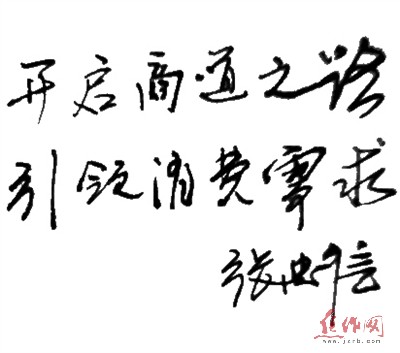 开启商道之路
引领消费需求
张忠信
焦作网
www.jzrb.com